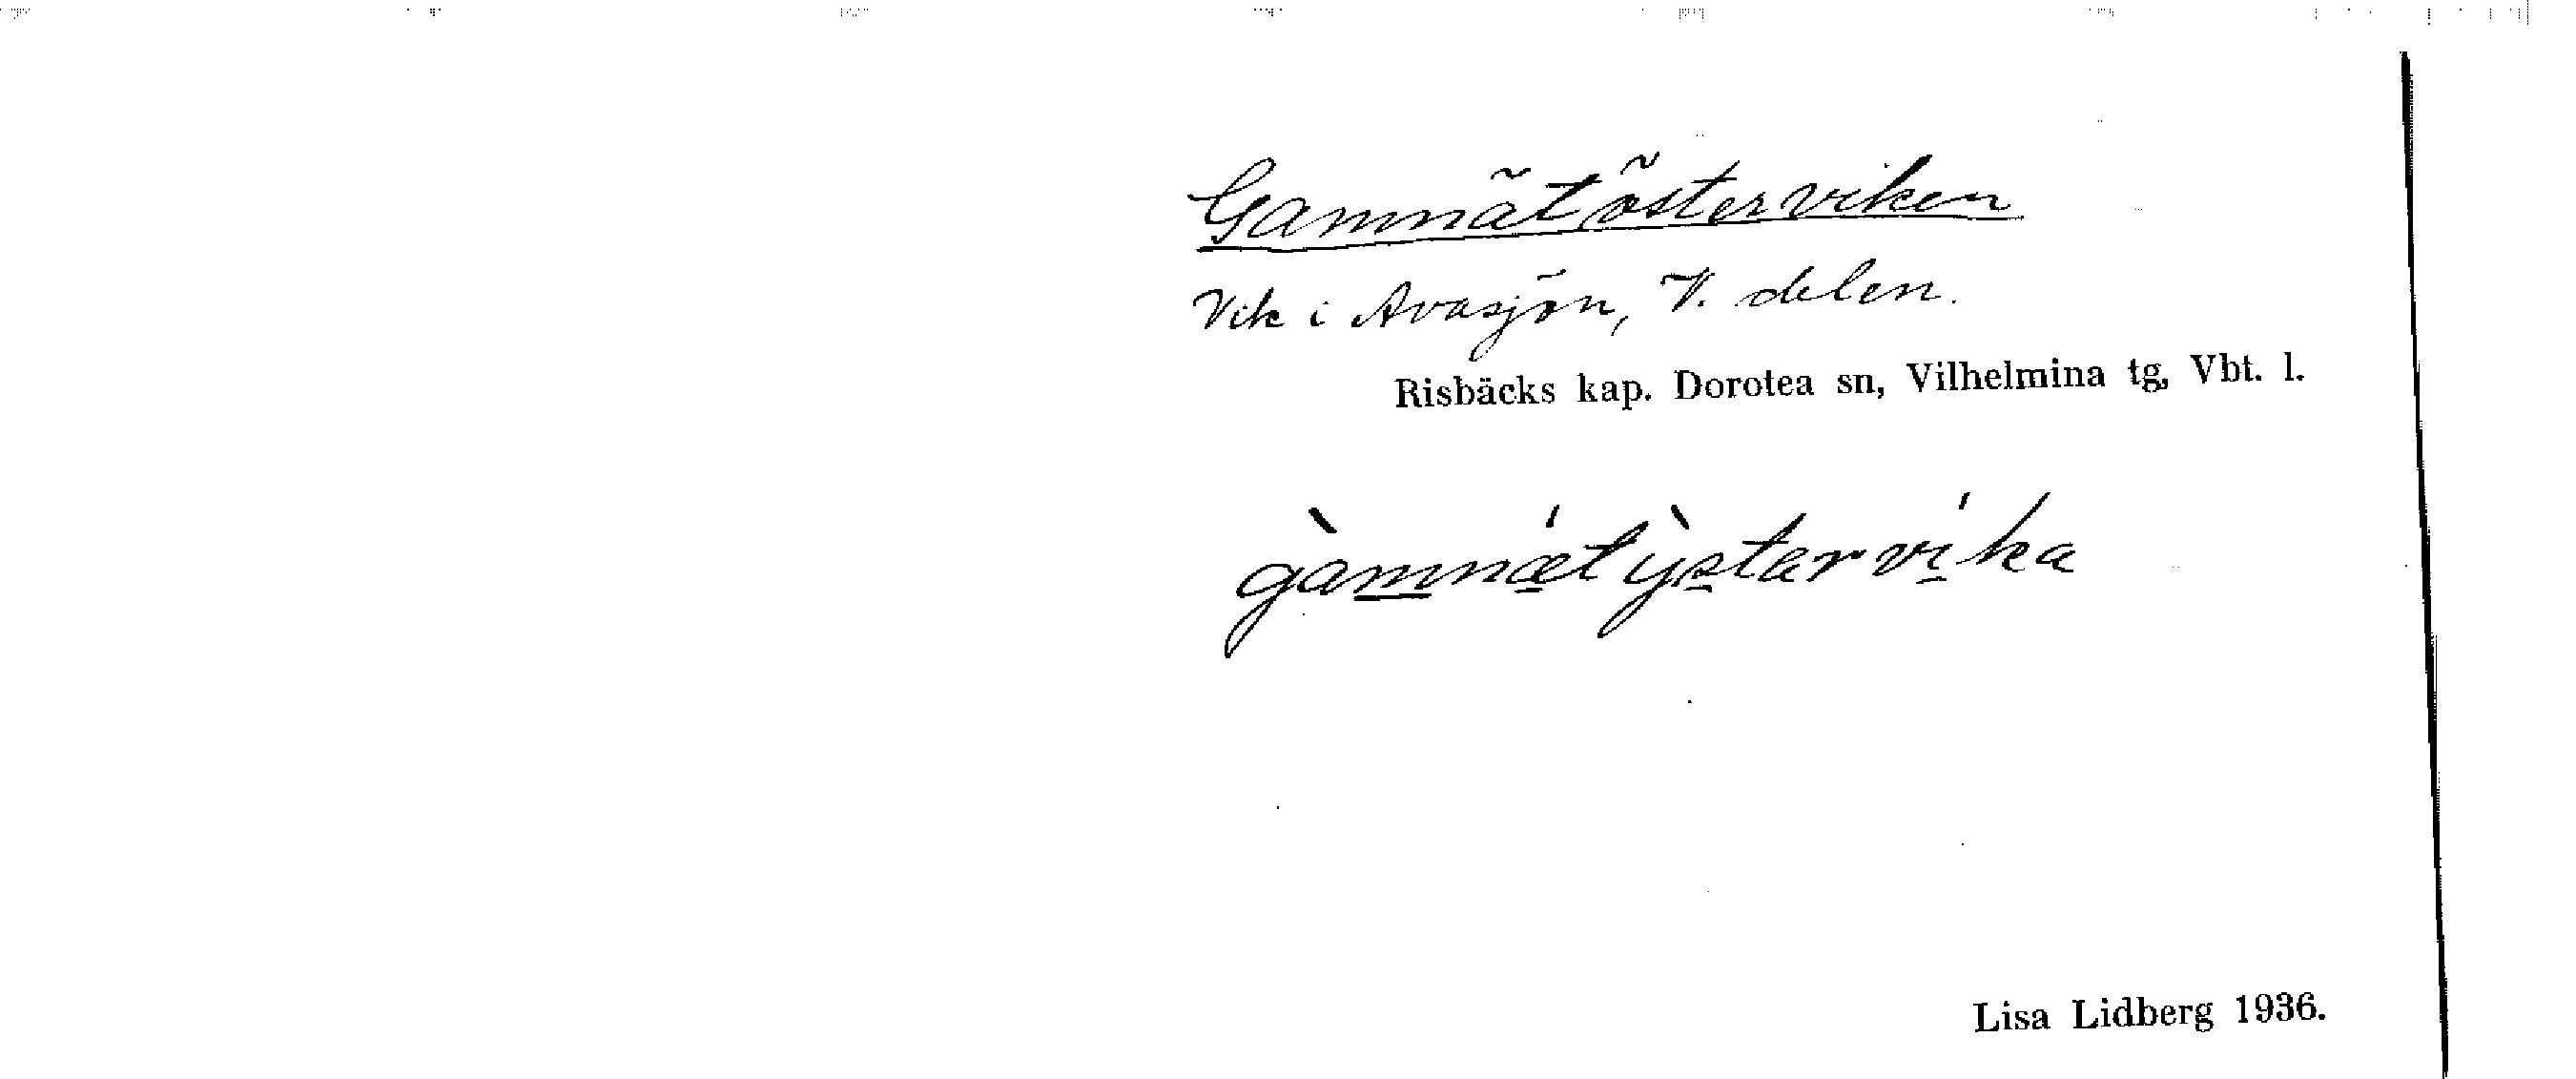 Gammätösterviken
Vik i Avasjön, V. delen.
Risbäcks kap. Dorotea sn, Vilhelmina tg, Vbt. l.
gàmnǽtỳstərvíka
Lisa Lidberg 1936.